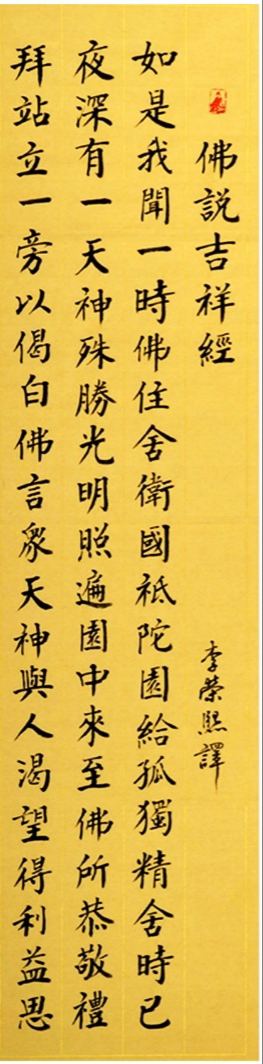 佛説吉祥經
李榮熙譯
如是我聞一時佛住舍衛國祇陀園給孤獨精舍時已
夜深有一天神殊勝光明照遍園中來至佛所恭敬禮
拜站立一旁以偈白佛言衆天神與人渴望得利益思